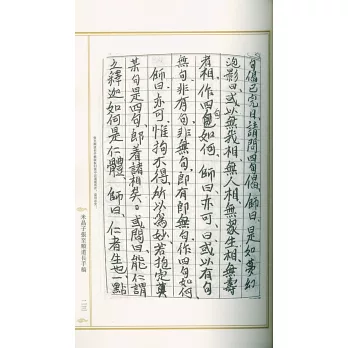 旬偈已完日、請問四句偈。師曰、是如夢幻
泡影。曰、或以無我相、無人相、無衆生相、無壽
者相、作四句如何。師曰、亦可。曰、或以有句
無句非有句非無句、即有即無句、作四句如何
師曰、亦可。惟拘不得、所以爲妙、若指定冀
某句是四句、即着諸相矣。或問曰、能仁謂
之釋迦、如何是仁體。師曰、仁者生也、一點
米晶子張至順道長手稿
二三